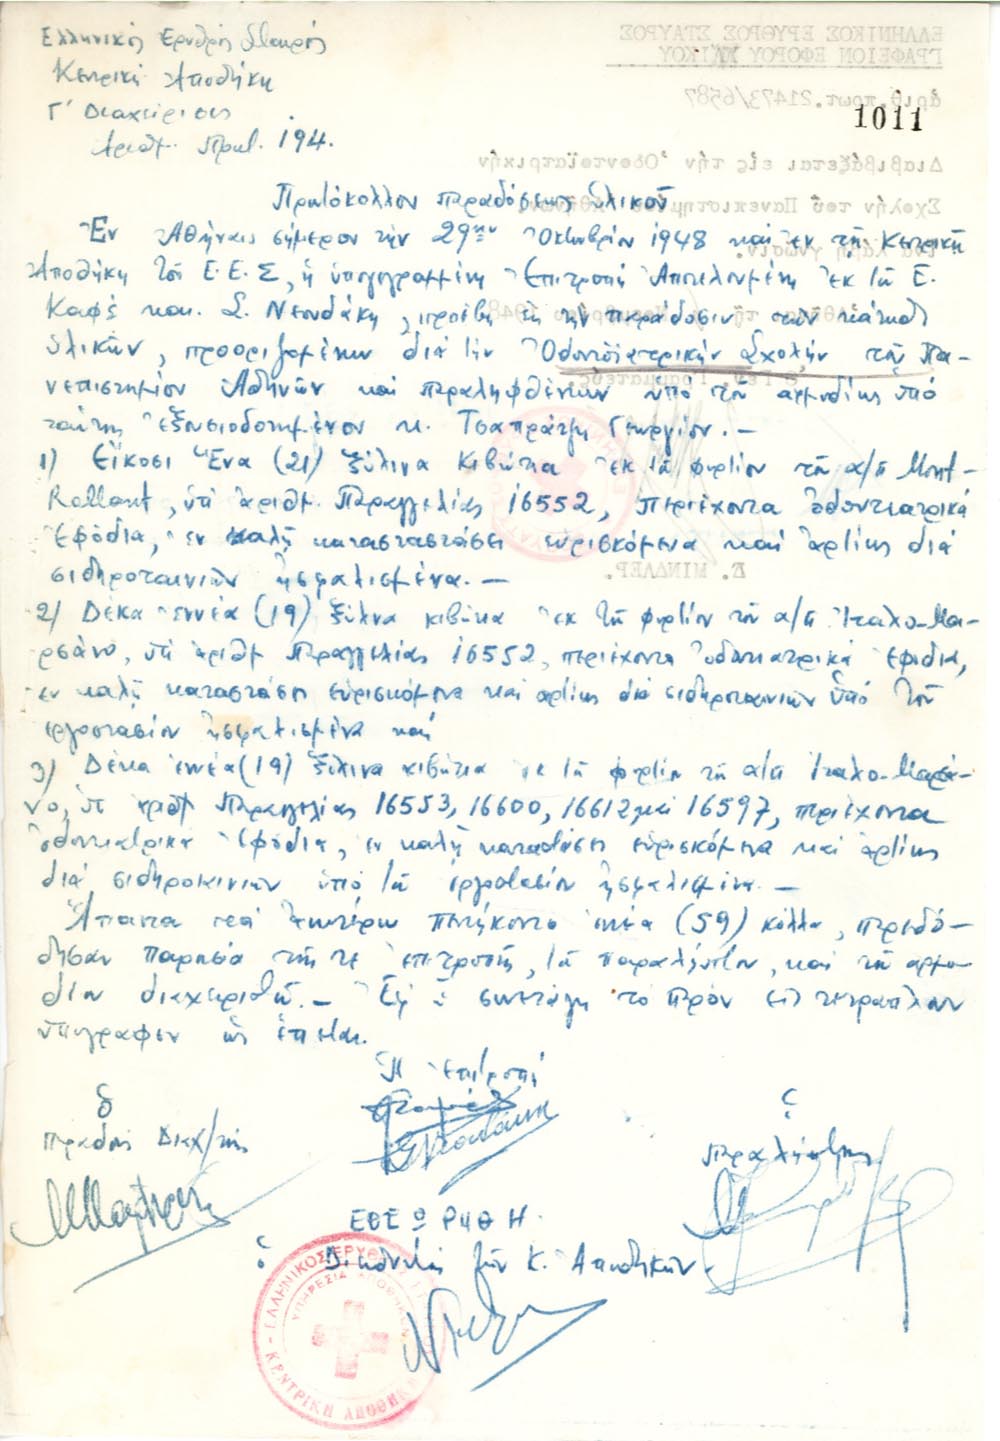 Ελληνικός Ερυθρός Σταυρός
Κεντρική Αποθήκη
Γ' Διαχείρισις
Αριθ. Πρωτ. 194.
1011
Πρωτόκολλον παραδόσεως υλικού
Εν Αθήναις σήμερον την 29ην Οκτωβρίου 1948 και εν τη Κεντρική
Αποθήκη του Ε.Ε.Σ, η υπογεγραμμένη Επιτροπή Αποτελουμένη εκ των Ε.
Καφέ και Σ. Νεονδάκη, προέβη εις την παράδοσιν των κάτωθι
υλικών, προοριζομένων διά την Οδοντοϊατρικήν Σχολήν του Πα-
νεπιστημίου Αθηνών και παραληφθέντων υπό του αρμοδίως υπό
ταύτης εξουσιοδοτημένου κ. Τσαπράζη Γεωργίου. –
1) Είκοσι Ένα (21) ξύλινα Κιβώτια εκ του φορτίου του α/π Mont-
Rolland, υπ' αριθ. Παραγγελίας 16552, περιέχοντα οδοντιατρικά
Εφόδια, εν καλή καταστατάσει ευρισκόμενα και αρτίως διά
σιδηροταινιών ησφαλισμένα. –
2) Δέκα εννέα (19) ξύλινα κιβώτια εκ του φορτίου του α/π Ιταλο-Μα-
ρσάνο, υπ' αριθμ Παραγγελίας 16552, περιέχοντα οδοντιατρικά εφόδια,
εν καλή καταστάσει ευρισκόμενα και αρτίως διά σιδηροταινιών υπό του
εργοστασίου ησφαλισμένα και
3) Δέκα εννέα (19) ξύλινα κιβώτια εκ του φορτίου του α/π Ιταλο-Μαρσά-
νο, υπ' αριθ Παραγγελίας 16553, 16600, 16612 και 16597, περιέχοντα
οδοντιατρικά εφόδια, εν καλή καταστάσει ευρισκόμενα και αρτίως
διά σιδηροταινιών υπό του εργοστασίου ησφαλισμένα. –
Άπαντα τα ανωτέρω πεντήκοντα εννέα (59) κόλλα, παρεδό-
θησαν παρουσία της τε επιτροπής, του παραλήπτου, και του αρμο-
δίου διαχειριστού. – Εφ' ω συνετάγη το παρόν εις τετραπλούν
υπογραφέν ως έπεται.
Η επιτροπή
Ο
Παραδούς Διαχ/στής
Ο
Παραλήπτης
ΕΘΕΩΡΗΘΗ.
Ο Διευθυντής των Κ. Αποθηκών.
ΕΛΛΗΝΙΚΟΣ ΕΡΥΘΡΟΣ
ΥΠΗΡΕΣΙΑ ΑΠΟΘΗΚΩΝ
ΚΕΝΤΡΙΚΗ ΑΠΟΘΗΚΗ